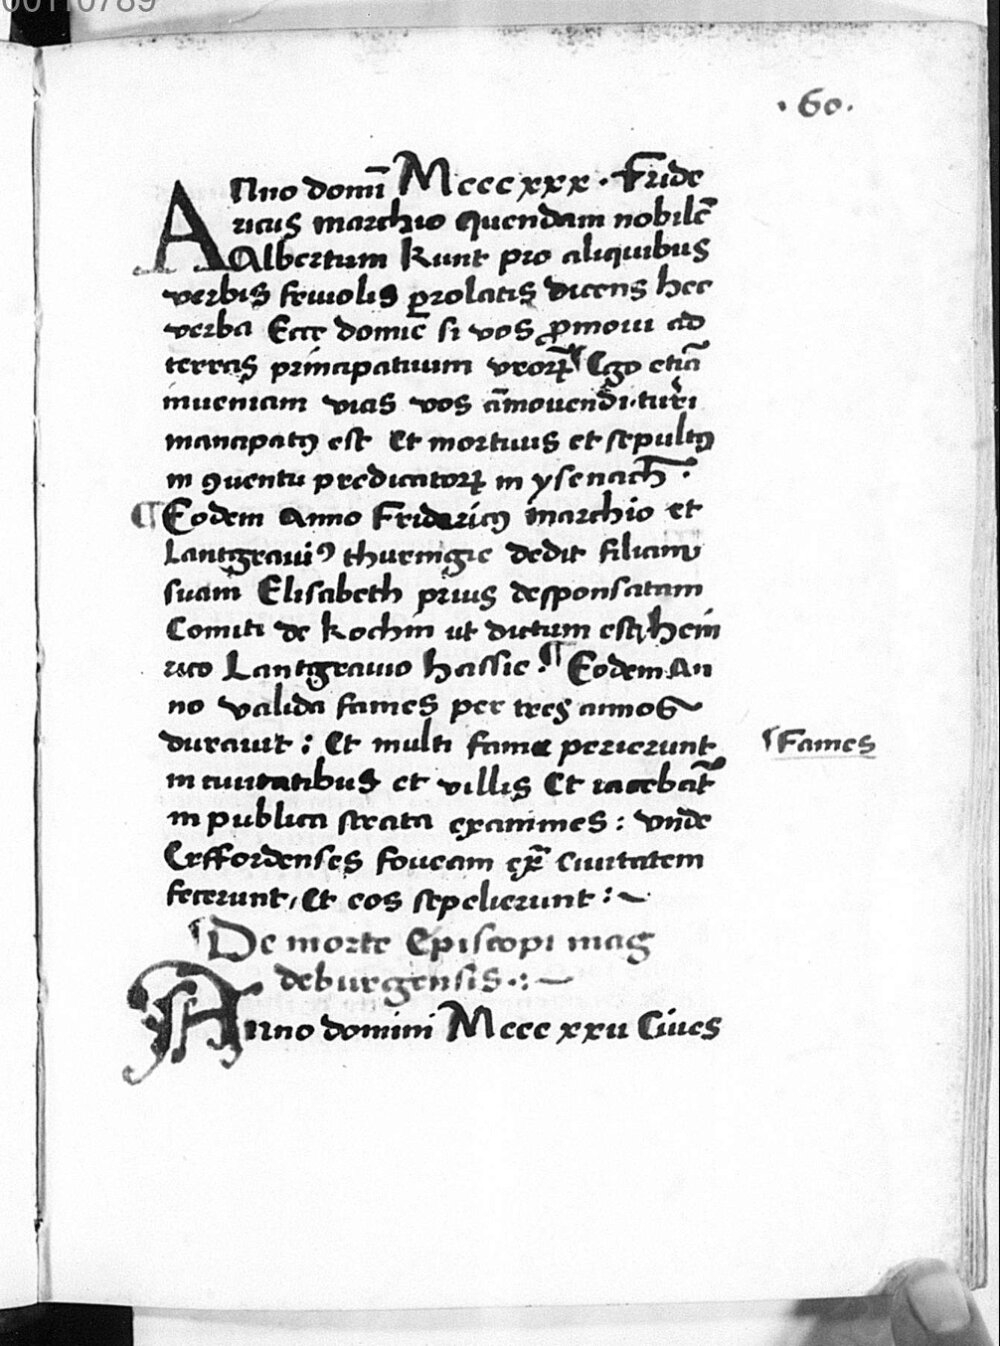 00110789
.60.
Anno domī Mcccxxx. Fride
ricus marchio quendam nobilē
Albertum kunt pro aliquibus
verbis friuolis ꝓrolatis dicens hec
verba Ecce domīe si vos ꝓmoui ad
terras principatuum vr̄orꝝ ¶ Ego etiā
inueniam vias vos āmouendi. turri
mancipatꝰ est Et mortuus et sepultꝰ
in ꝯuentu predicatorꝝ in ysenach̄.
¶ Eodem Anno Fridericꝰ marchio et
Lantgrauiꝰ thuringie dedit filiam
suam Elisabeth prius desponsatam
Comiti de kochin ut dictum est, hein
rico Lantgrauio hassie. ¶ Eodem An
no valida fames per tres annos
durauit: Et multi fame perierunt
in ciuitatibus et villis Et iacebāt
in publica strata exanimes: vn̄de
Erffordenses foueam ex̄ Ciuitatem
fecerunt, Et eos sepelierunt:~
¶ Fames
¶ De morte Episcopi mag
deburgensis.:—
Anno domini Mcccxxii Ciues